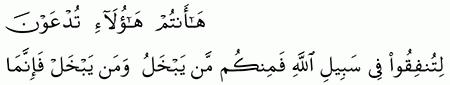 هَٰٓأَنتُمْ هَٰٓؤُلَآءِ تُدْعَوْنَ
لِتُنفِقُوا۟ فِى سَبِيلِ ٱللَّهِ فَمِنكُم مَّن يَبْخَلُ وَمَن يَبْخَلْ فَإِنَّمَا